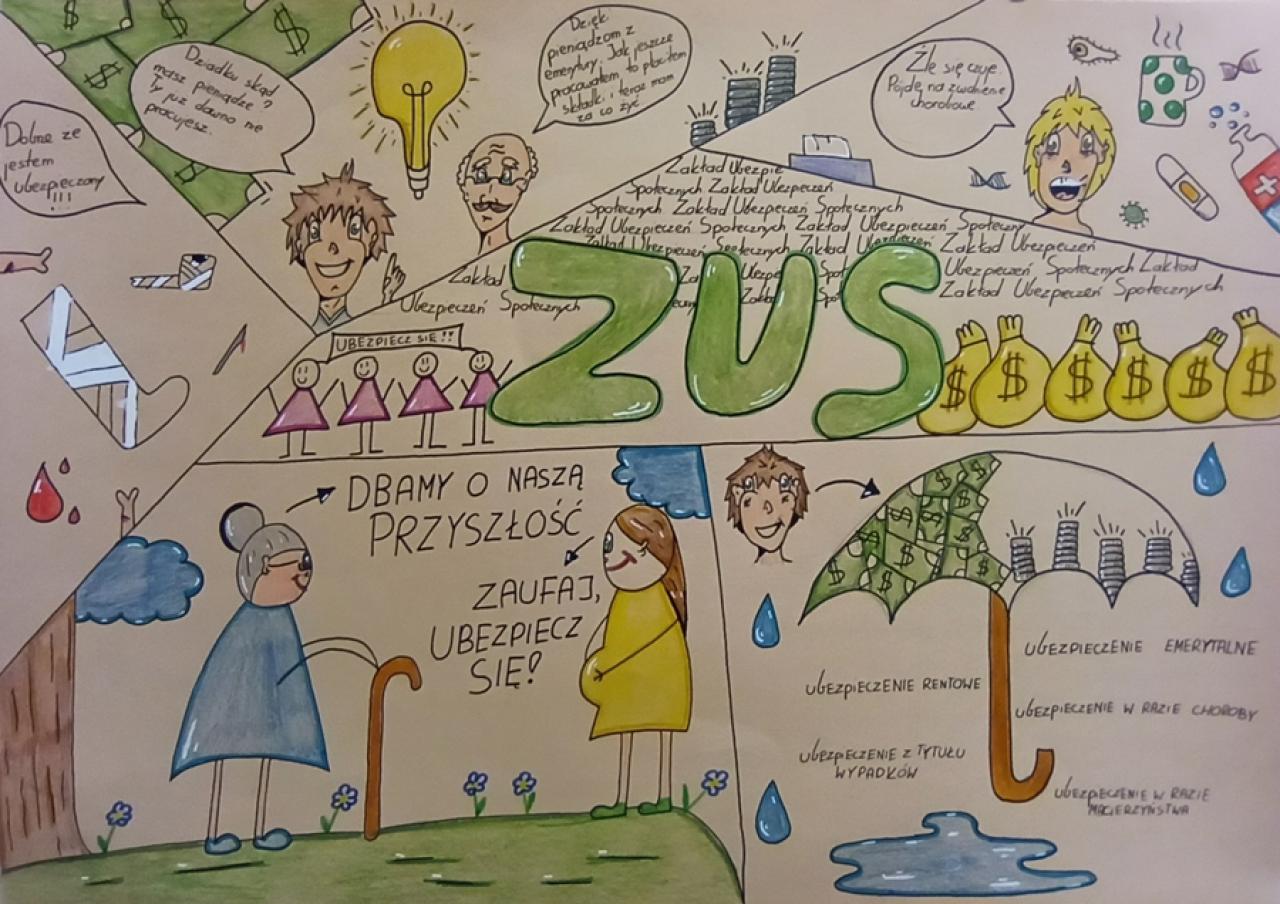 Dziadku skąd
masz pieniądze?
Ty już dawno nie
pracujesz.
Dzięki
pieniądzom z
emerytury. Jak jeszcze
pracowałem, to płaciłem
składki i teraz mam
za co żyć.
Źle się czuje.
Pójdę na zwolnienie
chorobowe
Dobrze że
jestem
ubezpieczony
!!!
Zakład Ubezpie
Społecznych Zakład Ubezpieczeń
Społecznych Zakład Ubezpieczeń Społecznych
Zakład Ubezpieczeń Społecznych Zakład Ubezpieczeń Społeczny
Zakład Ubezpieczeń Społecznych Zakład Ubezpieczeń Zakład Ubezpieczeń
Zakład Ubezpieczeń Społecznych Zakład
Ubezpieczeń Społecznych Zakład Ubezpieczeń Społecznych
ZUS
UBEZPIECZ SIĘ!!
$ $ $ $ $ $
DBAMY O NASZĄ
PRZYSZŁOŚĆ
ZAUFAJ,
UBEZPIECZ
SIĘ!
UBEZPIECZENIE EMERYTALNE
UBEZPIECZENIE RENTOWE
UBEZPIECZENIE W RAZIE CHOROBY
UBEZPIECZENIE Z TYTUŁU
WYPADKÓW
UBEZPIECZENIE W RAZIE
MACIERZYŃSTWA